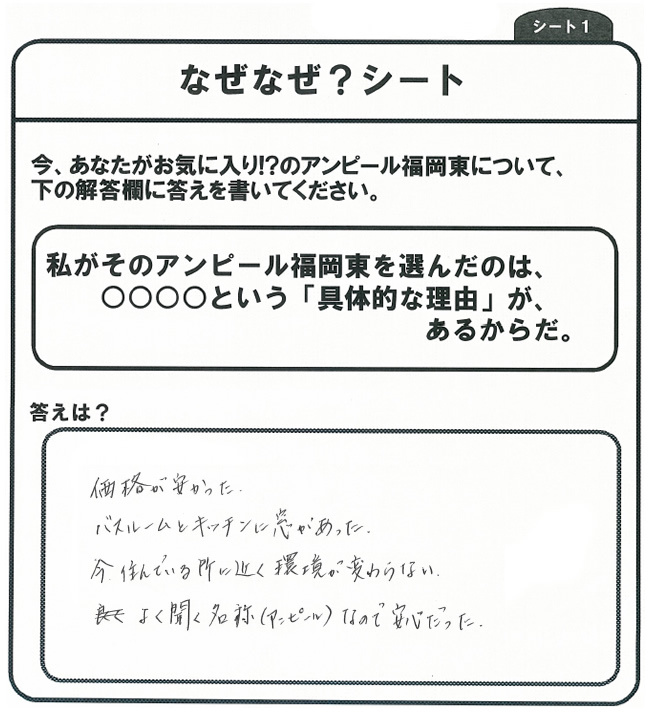 シート1
なぜなぜ？シート
今、あなたがお気に入り!?のアンピール福岡東について、
下の解答欄に答えを書いてください。
私がそのアンピール福岡東を選んだのは、
○○○○という「具体的な理由」が、
あるからだ。
答えは？
価格が安かった.
バスルームとキッチンに窓があった.
今住んでいる所に近く環境が変わらない.
よく聞く名称(アンピール)なので安心だった.